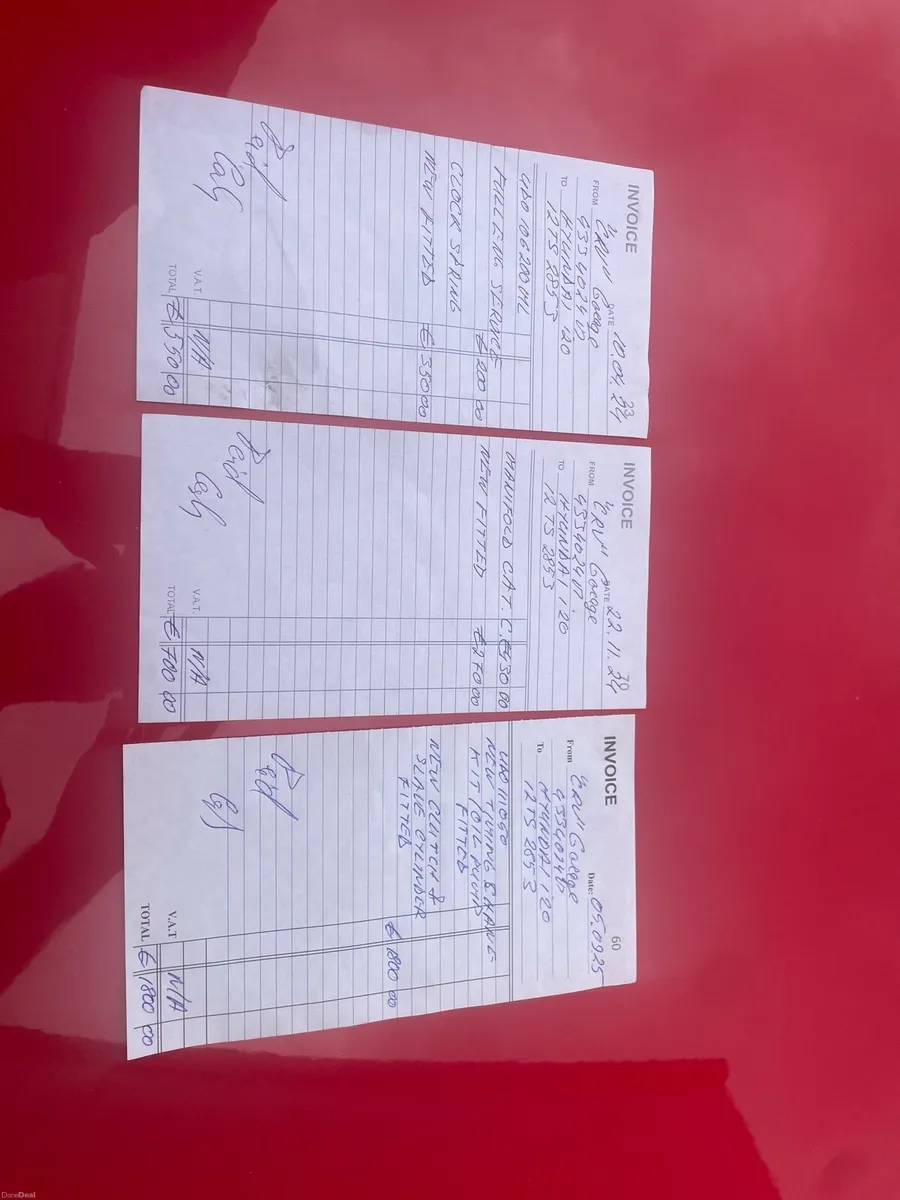 INVOICE
DATE 10.04.24
23
FROM "ERV" Garage
TO HYUNDAI i20
12 TS 2853
106200 ML
FULL ENG SERVICE
€ 200 00
CLOCK SPRING
NEW FITTED € 350 00
Paid
V.A.T. N/A
TOTAL € 550,00
INVOICE
30
DATE 22.11.24
FROM "ERV" Garage
TO HYUNDAI i20
12 TS 2853
MANIFOLD CAT. C. €430 00
NEW FITTED €270 00
Paid
V.A.T. N/A
TOTAL € 700 00
INVOICE
60
Date: 05.09 25
From "ERV" Garage
To HYUNDAI i20
12 TS 2853
NEW TIMING &
KIT
FITTED
NEW CLUTCH &
SLAVE CYLINDER
FITTED
€ 1800 00
Paid
V.A.T N/A
TOTAL € 1800 00
DoneDeal